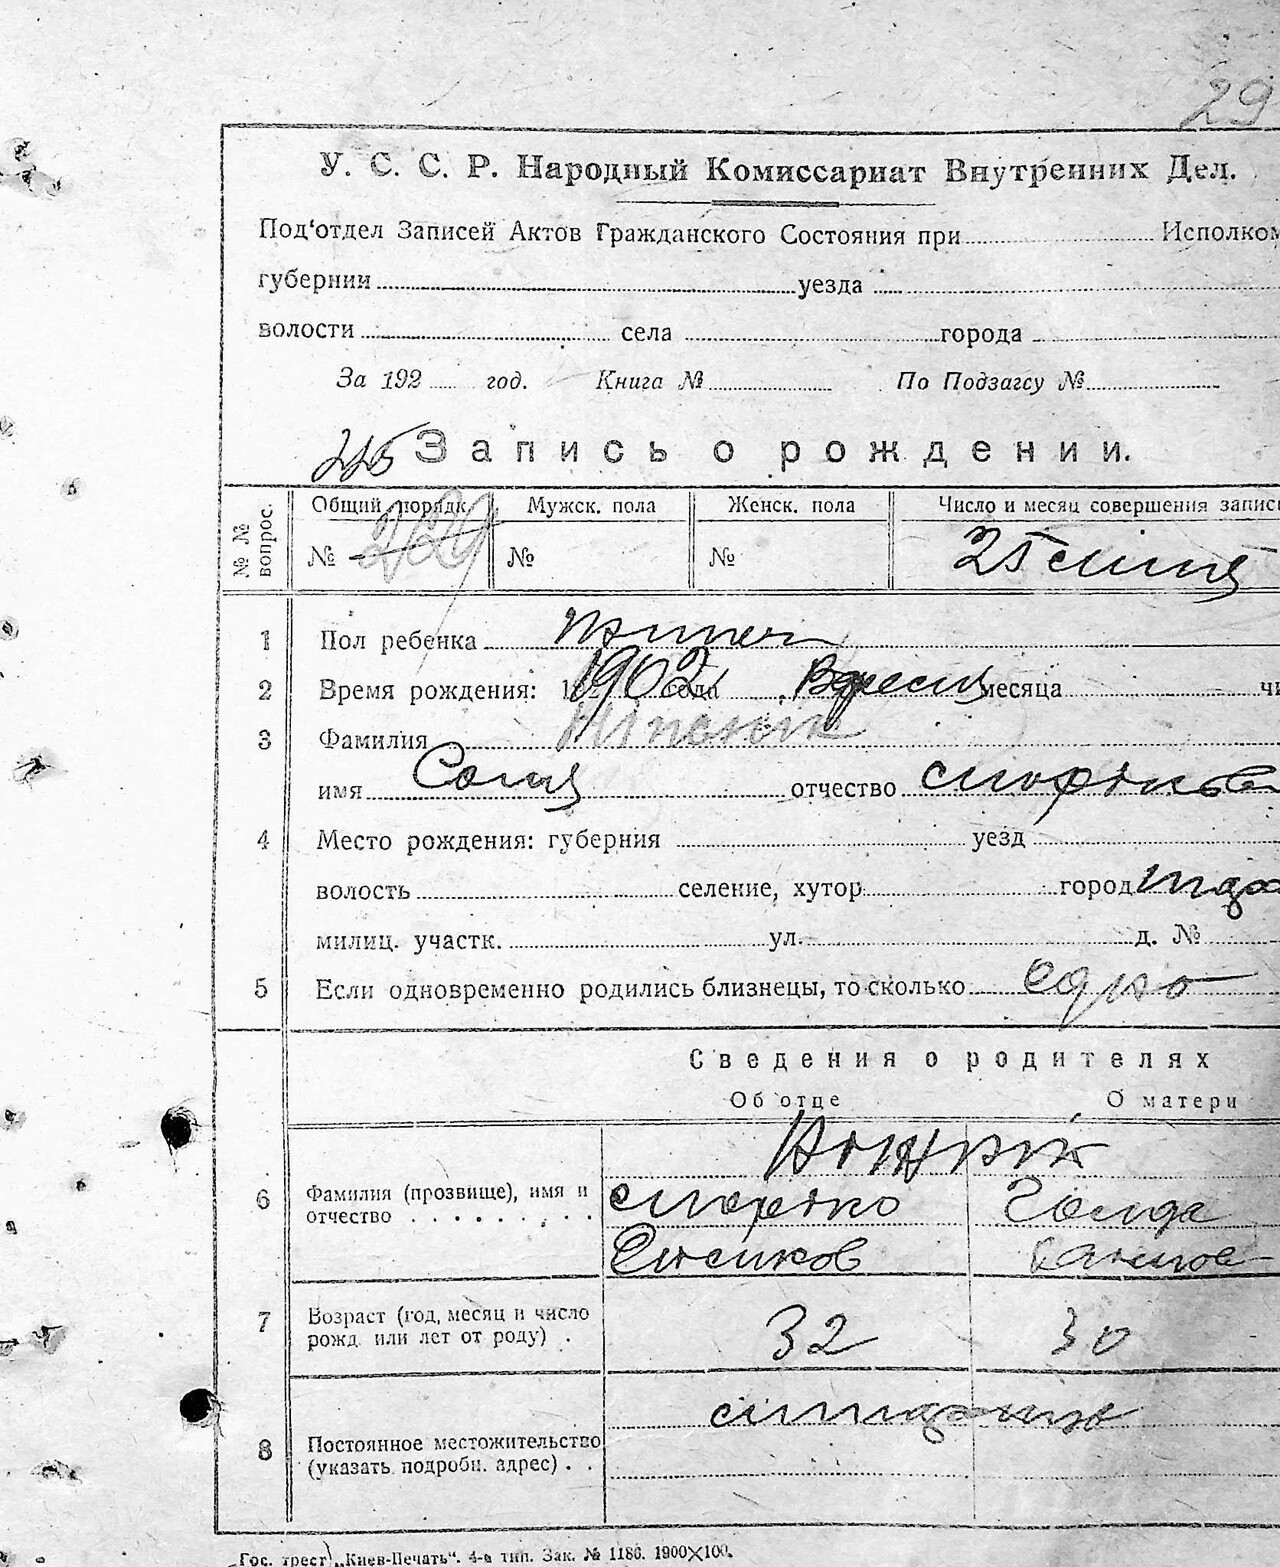 29
У. С. С. Р. Народный Комиссариат Внутренних Дел.
Под'отдел Записей Актов Гражданского Состояния при Исполком
губернии уезда
волости села города
За 192 год. Книга № По Подзагсу №
Запись о рождении.
№ № вопрос.
Общий порядк. Мужск. пола Женск. пола Число и месяц совершения запис
№ 229 № № 25
1 Пол ребенка
2 Время рождения: 1902 года Вресня месяца чи
3 Фамилия
имя Соня отчество
4 Место рождения: губерния уезд
волость селение, хутор город
милиц. участк. ул. д. №
5 Если одновременно родились близнецы, то сколько одно
Сведения о родителях
Об отце О матери
6 Фамилия (прозвище), имя и Голда
отчество
7 Возраст (год, месяц и число
рожд. или лет от роду) . 32 30
8 Постоянное местожительство
(указать подробн. адрес) . .
Гос. трест „Киев-Печать". 4-я тип. Зак. № 1186. 1900×100.